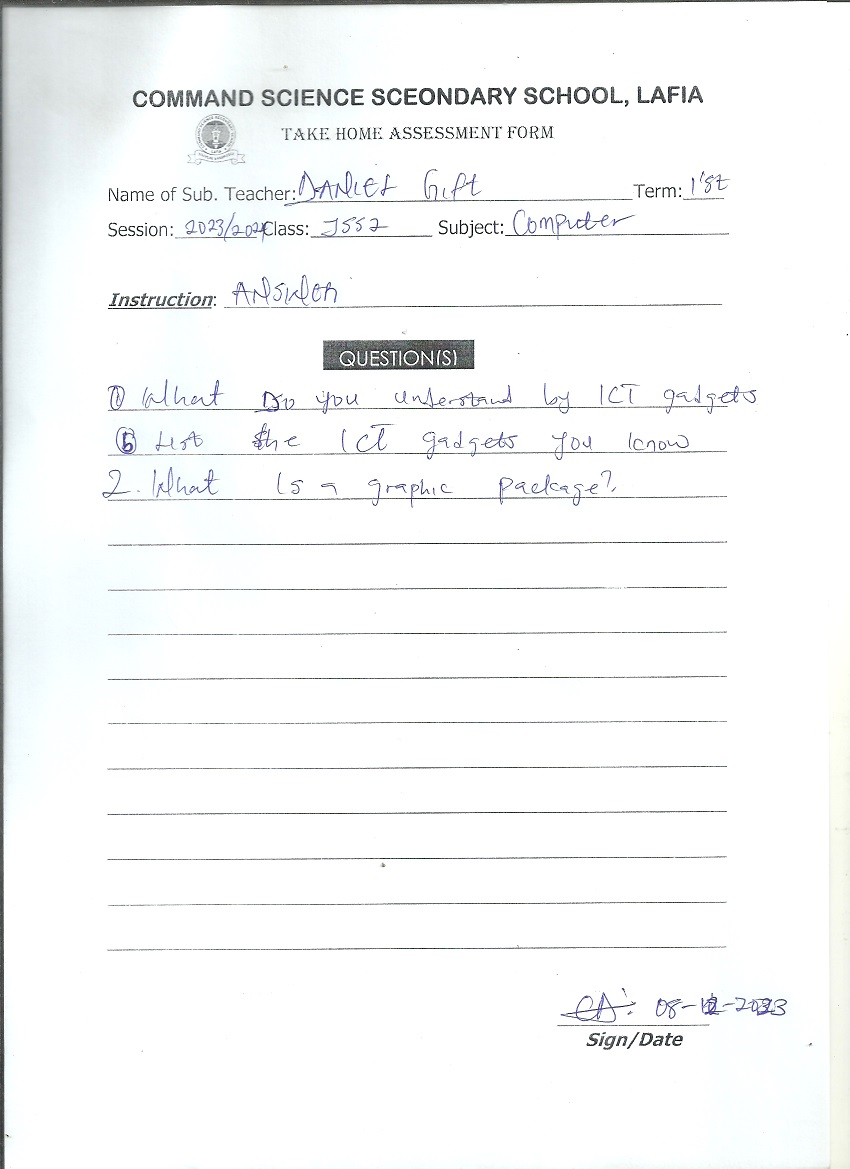 COMMAND SCIENCE SCEONDARY SCHOOL, LAFIA
TAKE HOME ASSESSMENT FORM
Name of Sub. Teacher: DANIEL Gift Term: 1'st
Session: 2023/2024 Class: JSS2 Subject: Computer
Instruction: ANSWER
QUESTION(S)
① What Do you understand by ICT gadgets
ⓑ List the ICT gadgets you know
2. What Is a graphic package?
08-12-2023
Sign/Date